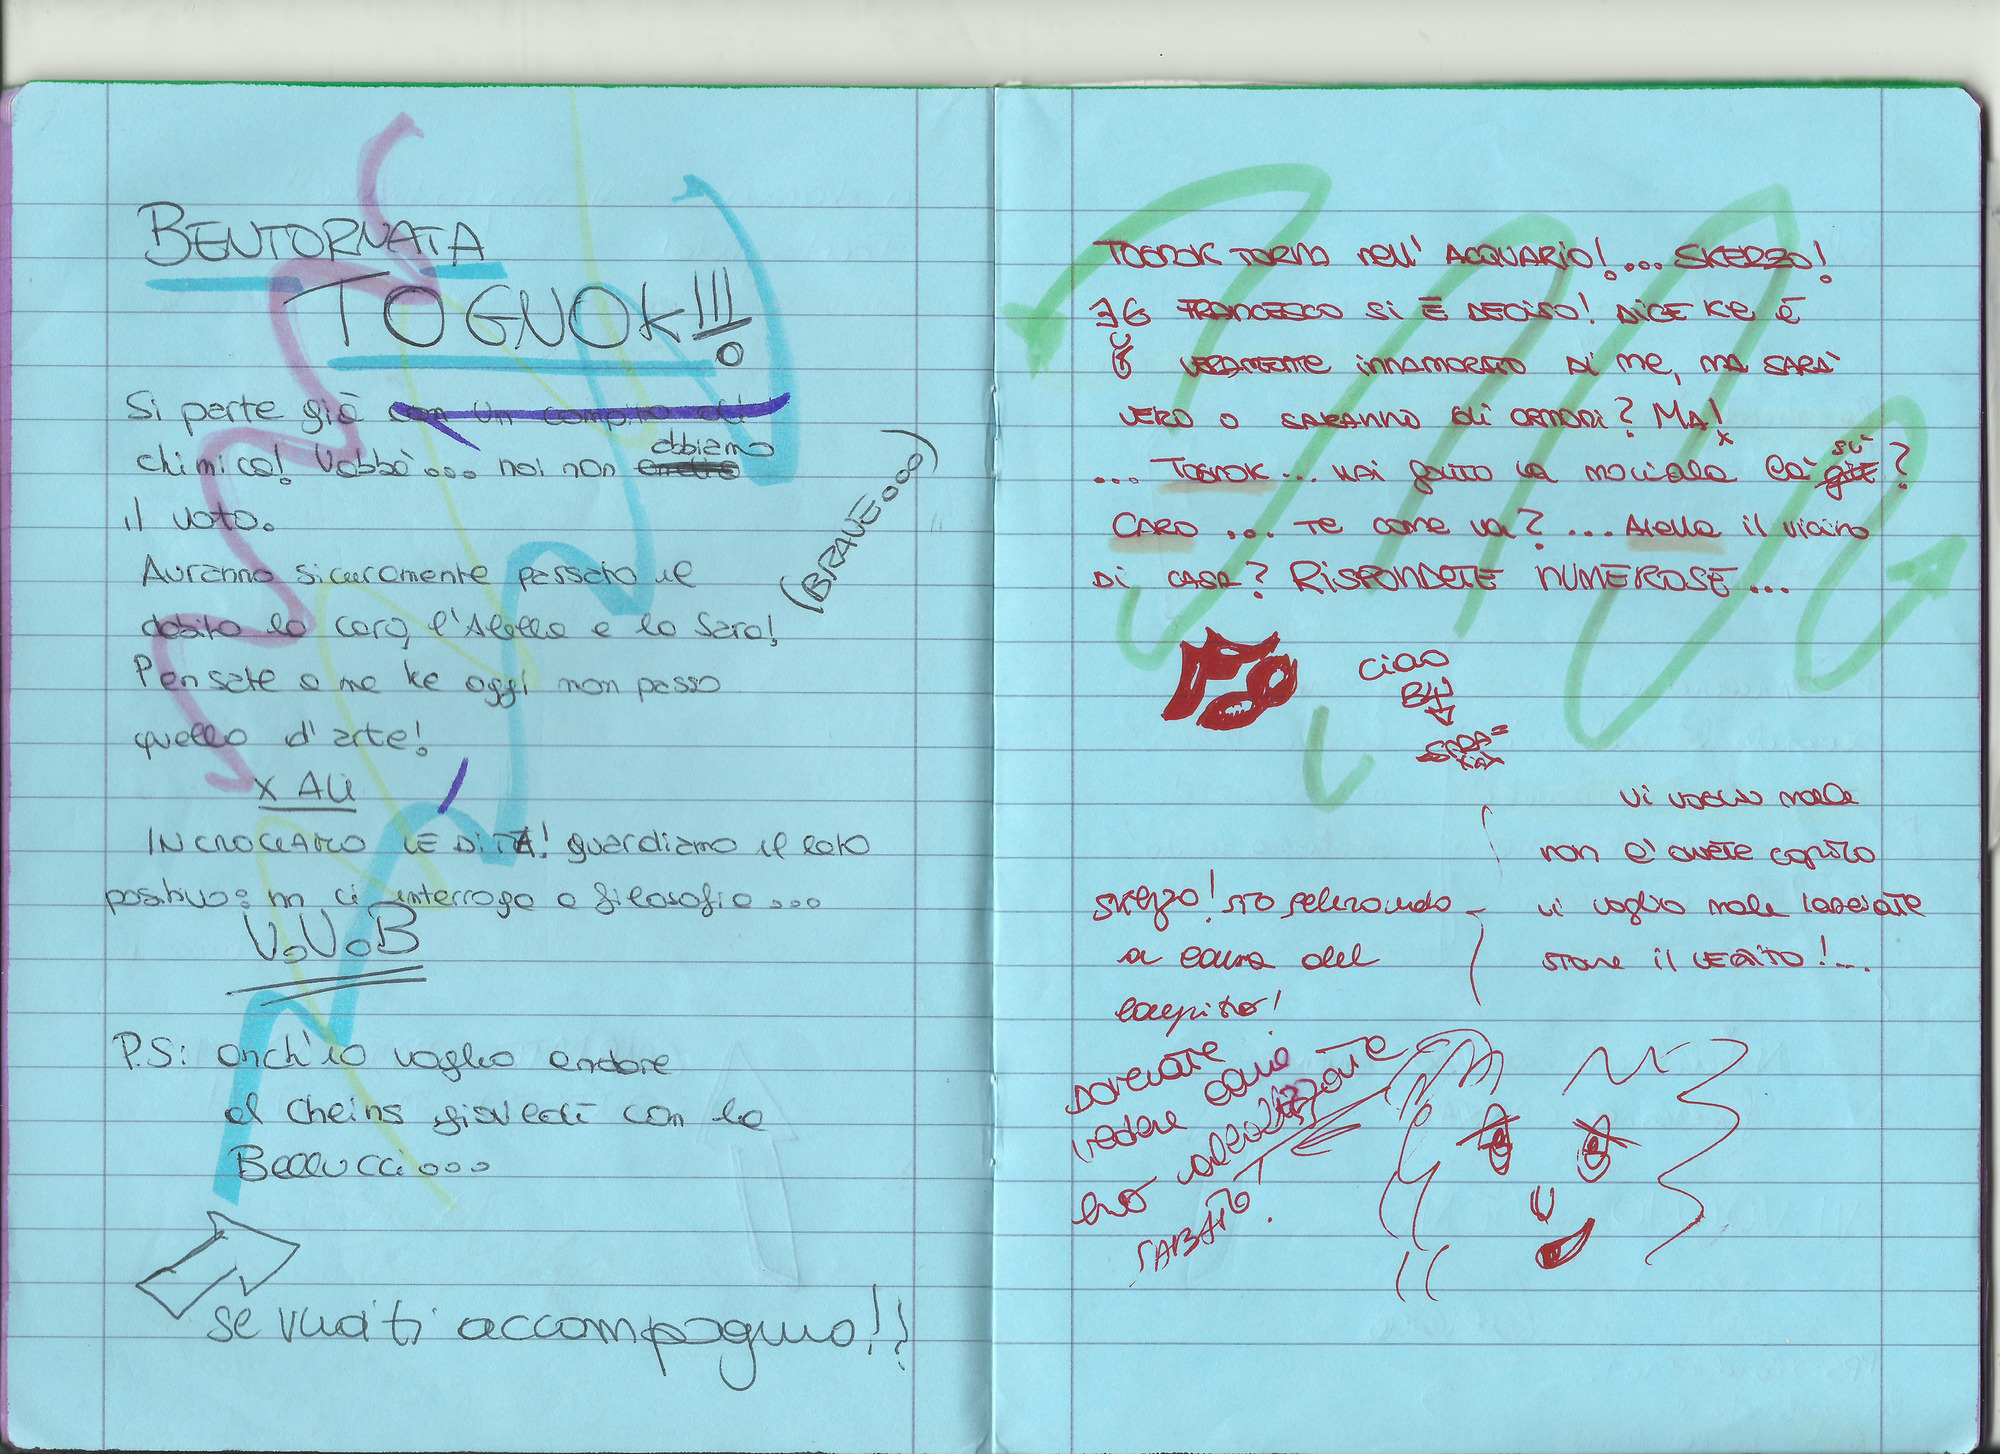 BENTORNATA
TOGNOK!!!
Si parte già con un compito di
chimica! Vabbè... noi non abbiamo
il voto.
(BRAVE...)
Avranno sicuramente passato il
debito la caro, l'Alella e la Sara!
Pensate a me ke oggi non passo
quello d'arte!
X ALI
INCROCIAMO LE DITA! guardiamo il lato
positivo: m ci interroga a filosofia...
V.V.B
P.S: anch'io voglio andare
al Cheins giovedì con la
Bellucci...
se vuoi ti accompagno!!
TOGNOK TORNA nell' ACQUARIO!... SKERZO!
FRANCESCO Si È DECISO! DICE KE È
VERAMENTE INNAMORATO DI ME, MA SARÀ
VERO O SARANNO gli ORMONI? MA!
... TOGNOK... HAI fatto la
CARO ... TE come va? ... Alella il vicino
DI CASA? RISPONDETE NUMEROSE...
Ciao
vi voglio male
non l'avete capito
vi voglio male lasciate
stare il !...
skerzo! sto
a causa del
compito!
DOVEVATE
vedere come
ero
SABATO!